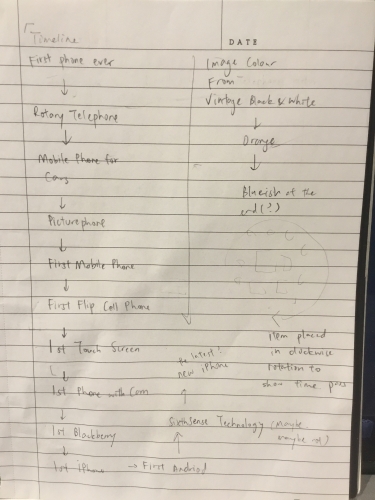 Timeline
DATE
First phone ever
Rotary Telephone
Mobile Phone for
Cars
Picturephone
First Mobile Phone
First Flip Cell Phone
1st Touch Screen
1st Phone with Cam
1st Blackberry
1st iphone → First Android
SixthSense Technology (Maybe
maybe not)
the latest!
new iPhone
Image Colour
From
Vintage Black & White
Orange
Blueish at the
end(?)
item placed
in clockwise
rotation to
show time pass